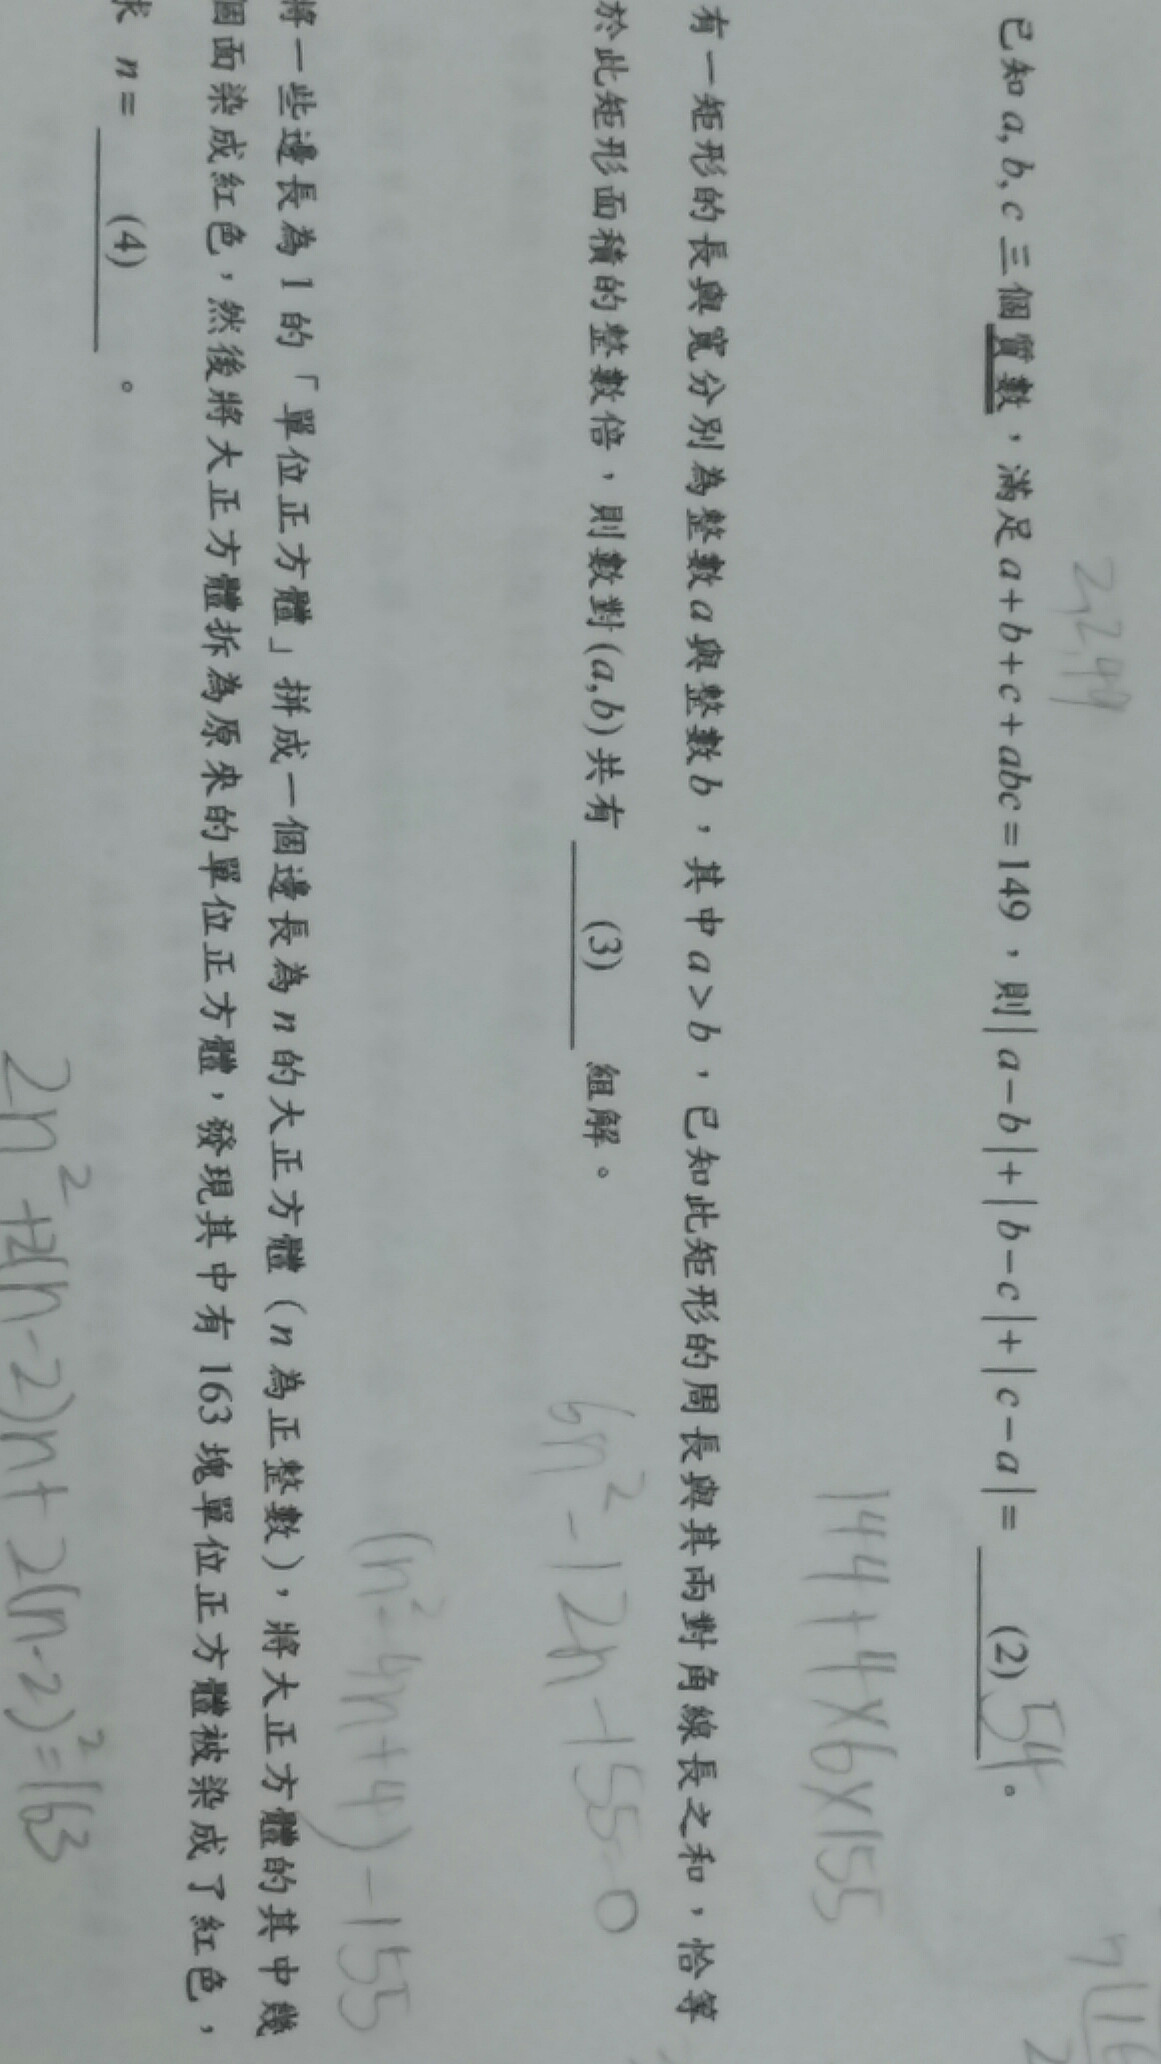 2,2,49
已知 a, b, c 三個質數，滿足 a+b+c+abc=149，則|a-b|+|b-c|+|c-a|= (2) 54 。
144+4×6×155
有一矩形的長與寬分別為整數 a 與整數 b，其中 a>b，已知此矩形的周長與其兩對角線長之和，恰等
於此矩形面積的整數倍，則數對(a,b)共有 (3) 組解。
6n²-12n-155=0
(n²-4n+4)-155
將一些邊長為 1 的「單位正方體」拼成一個邊長為 n 的大正方體（n 為正整數），將大正方體的其中幾
個面染成紅色，然後將大正方體拆為原來的單位正方體，發現其中有 163 塊單位正方體被染成了紅色，
求 n= (4) 。
2n²+2(n-2)n+2(n-2)²=163